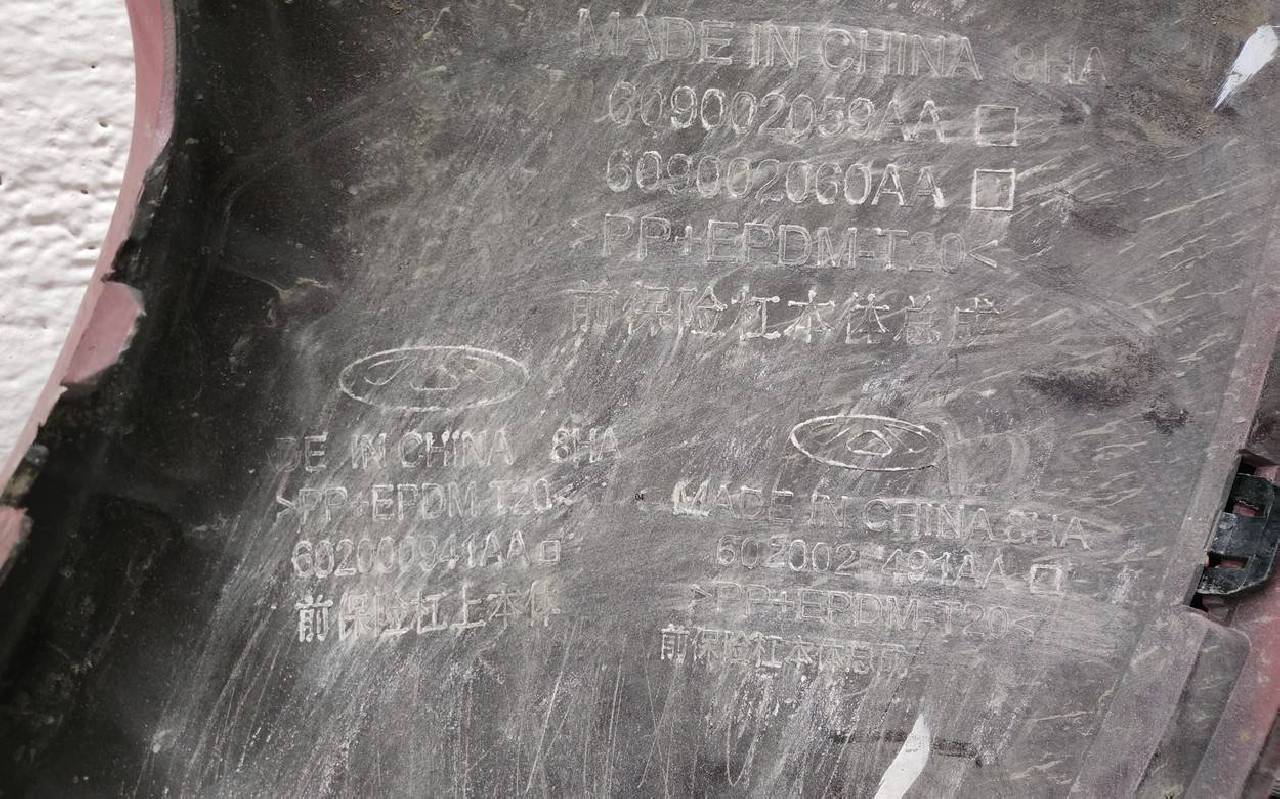 MADE IN CHINA 8HA
609002059AA
609002060AA
>PP+EPDM-T20<
前保险杠本体总成
DE IN CHINA 8HA
>PP+EPDM-T20<
602000941AA
前保险杠上本体
MADE IN CHINA 8HA
602002 491AA
>PP+EPDM-T20<
前保险杠本体总成